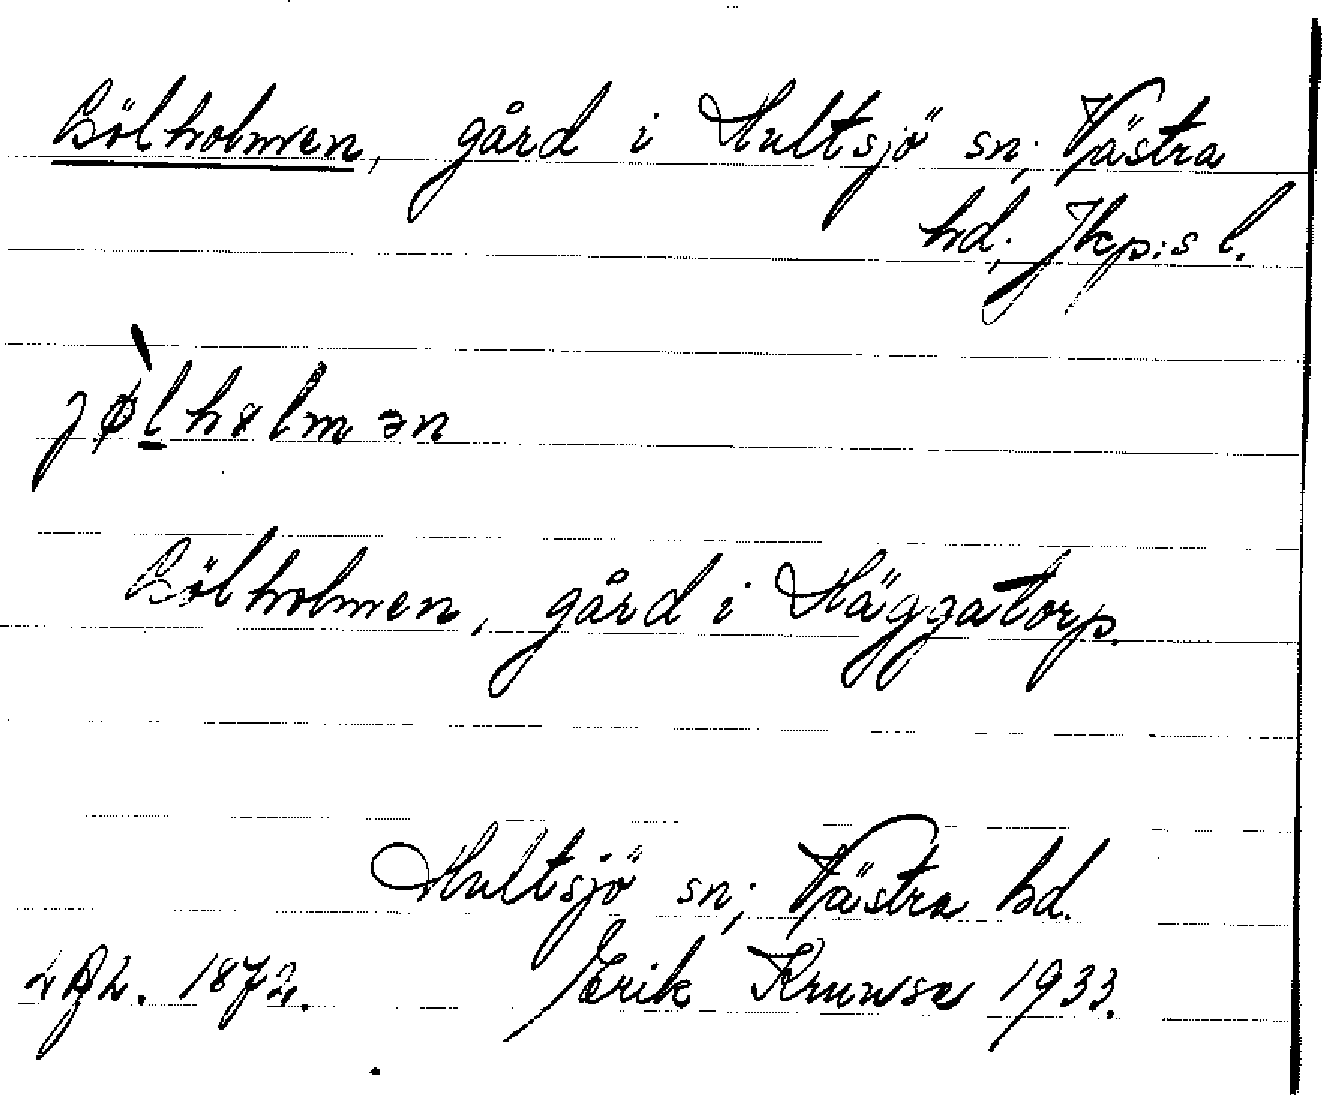 Gölholmen, gård i Hultsjö sn; Västra
hd; Jkp:s l.
jø̀lhɵlmən
Gölholmen, gård i Häggatorp.
Hultsjö sn; Västra hd.
1872. Erik 1933.